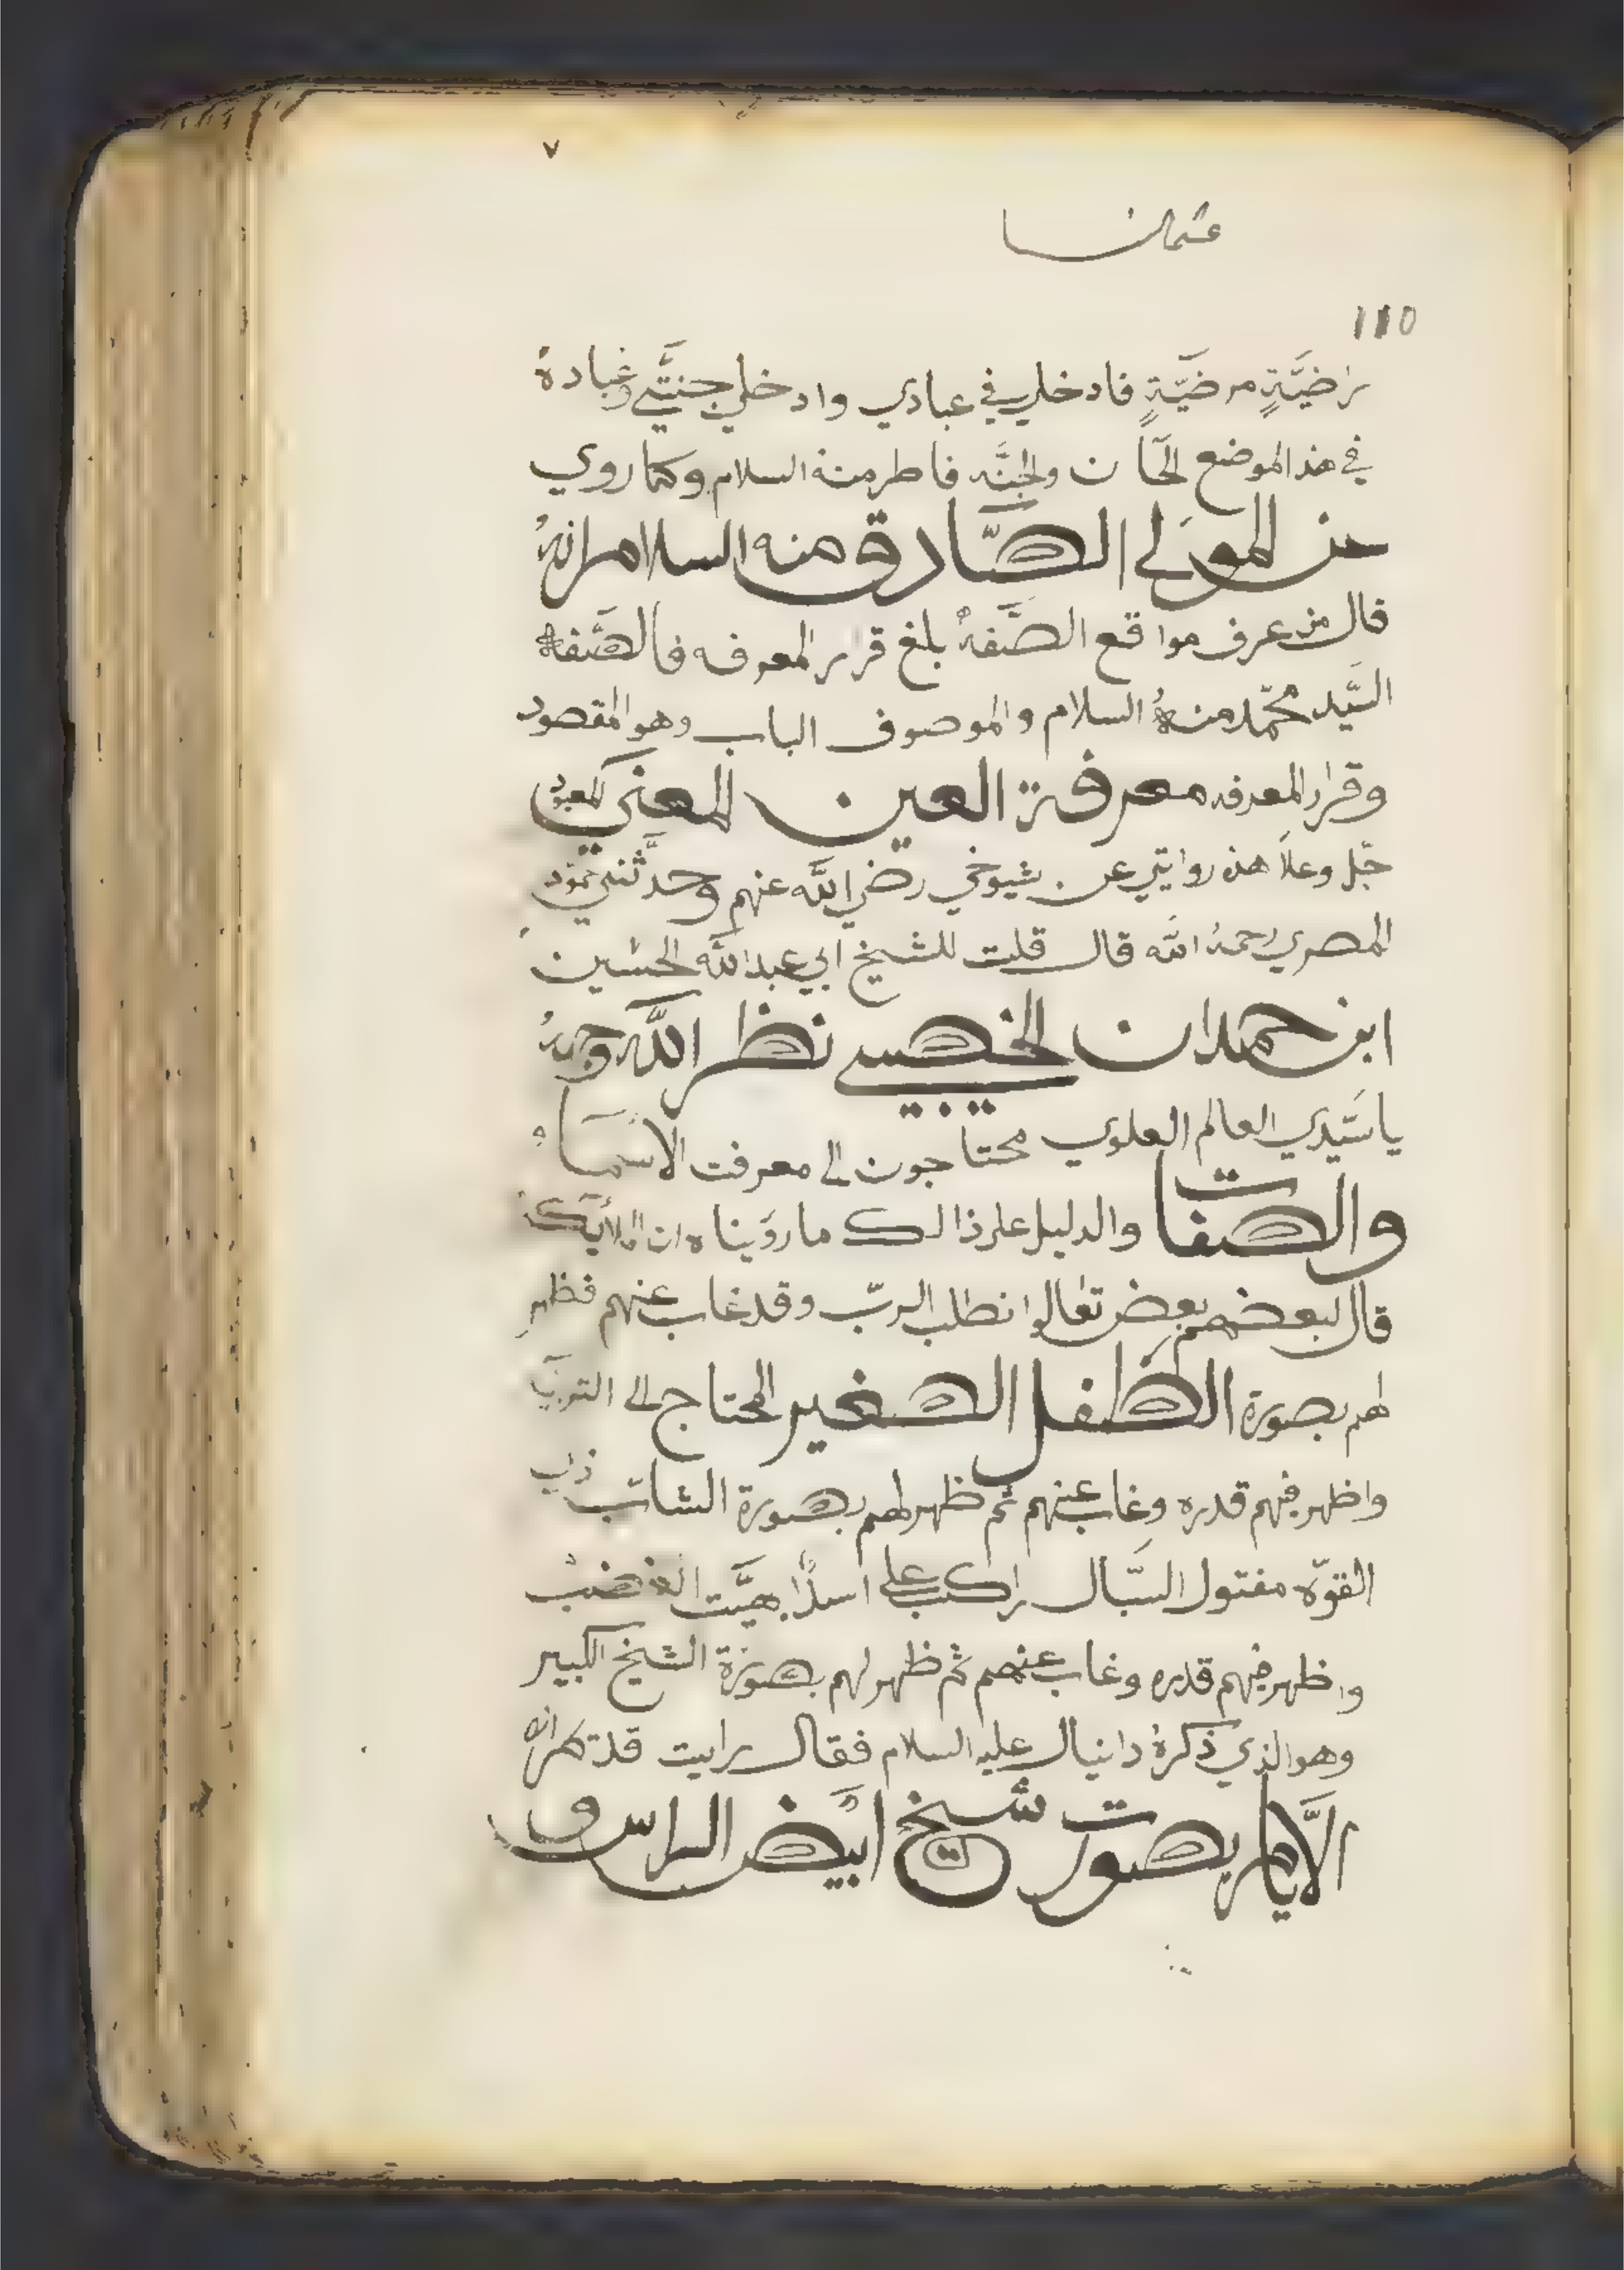 ٧
عثمان
110
راضيَّةٍ مرضيَّةٍ فادخلي في عبادي وادخلي جنتَّي وعباده
في هذا الموضع الحَّا ن والجنَّه فاطر منه السلام وكما روي
عن المولى الصَّادق منه السلام انهُ
قال من عرف مواقع الصَّفهُ بلغ قرار المعرفه فالصَّفه
السَّيد محمّد منهُ السلام والموصوف الباب وهو المقصود
وقرار المعرفه معرفة العين المعنى المعبود
جّل وعلا هذه روايتي عن شيوخي رضي الله عنهم وحدَّثني
المصري رحمهُ الله قال قلت للشيخ ابي عبد الله الحسين
ابن حمدان الخصيبي نظر اللَّه وجههُ
ياسَّيدي العالم العلوي محتاجون الى معرفت الاسمَاء
والصفات والدليل على ذالك ما روَيناه ان الملأيكة
قال لبعضهم بعض تعالوا نطلب الربّ وقد غاب عنهم فظهر
لهم بصورة الطفل الصغير المحتاج الى التربَية
واظهر فيهم قدره وغاب عنهم ثم ظهر لهم بصورة الشاب ذي
القوّه مفتول السّبال راكب على اسدًا بهيَّت الغضب
واظهر فيهم قدره وغاب عنهم ثم ظهر لهم بصورة الشيخ الكبير
وهو الذي ذكرهُ دانيال عليه السلام فقال رايت
الاَّيام بصورت شيخ ابيَض الراس و